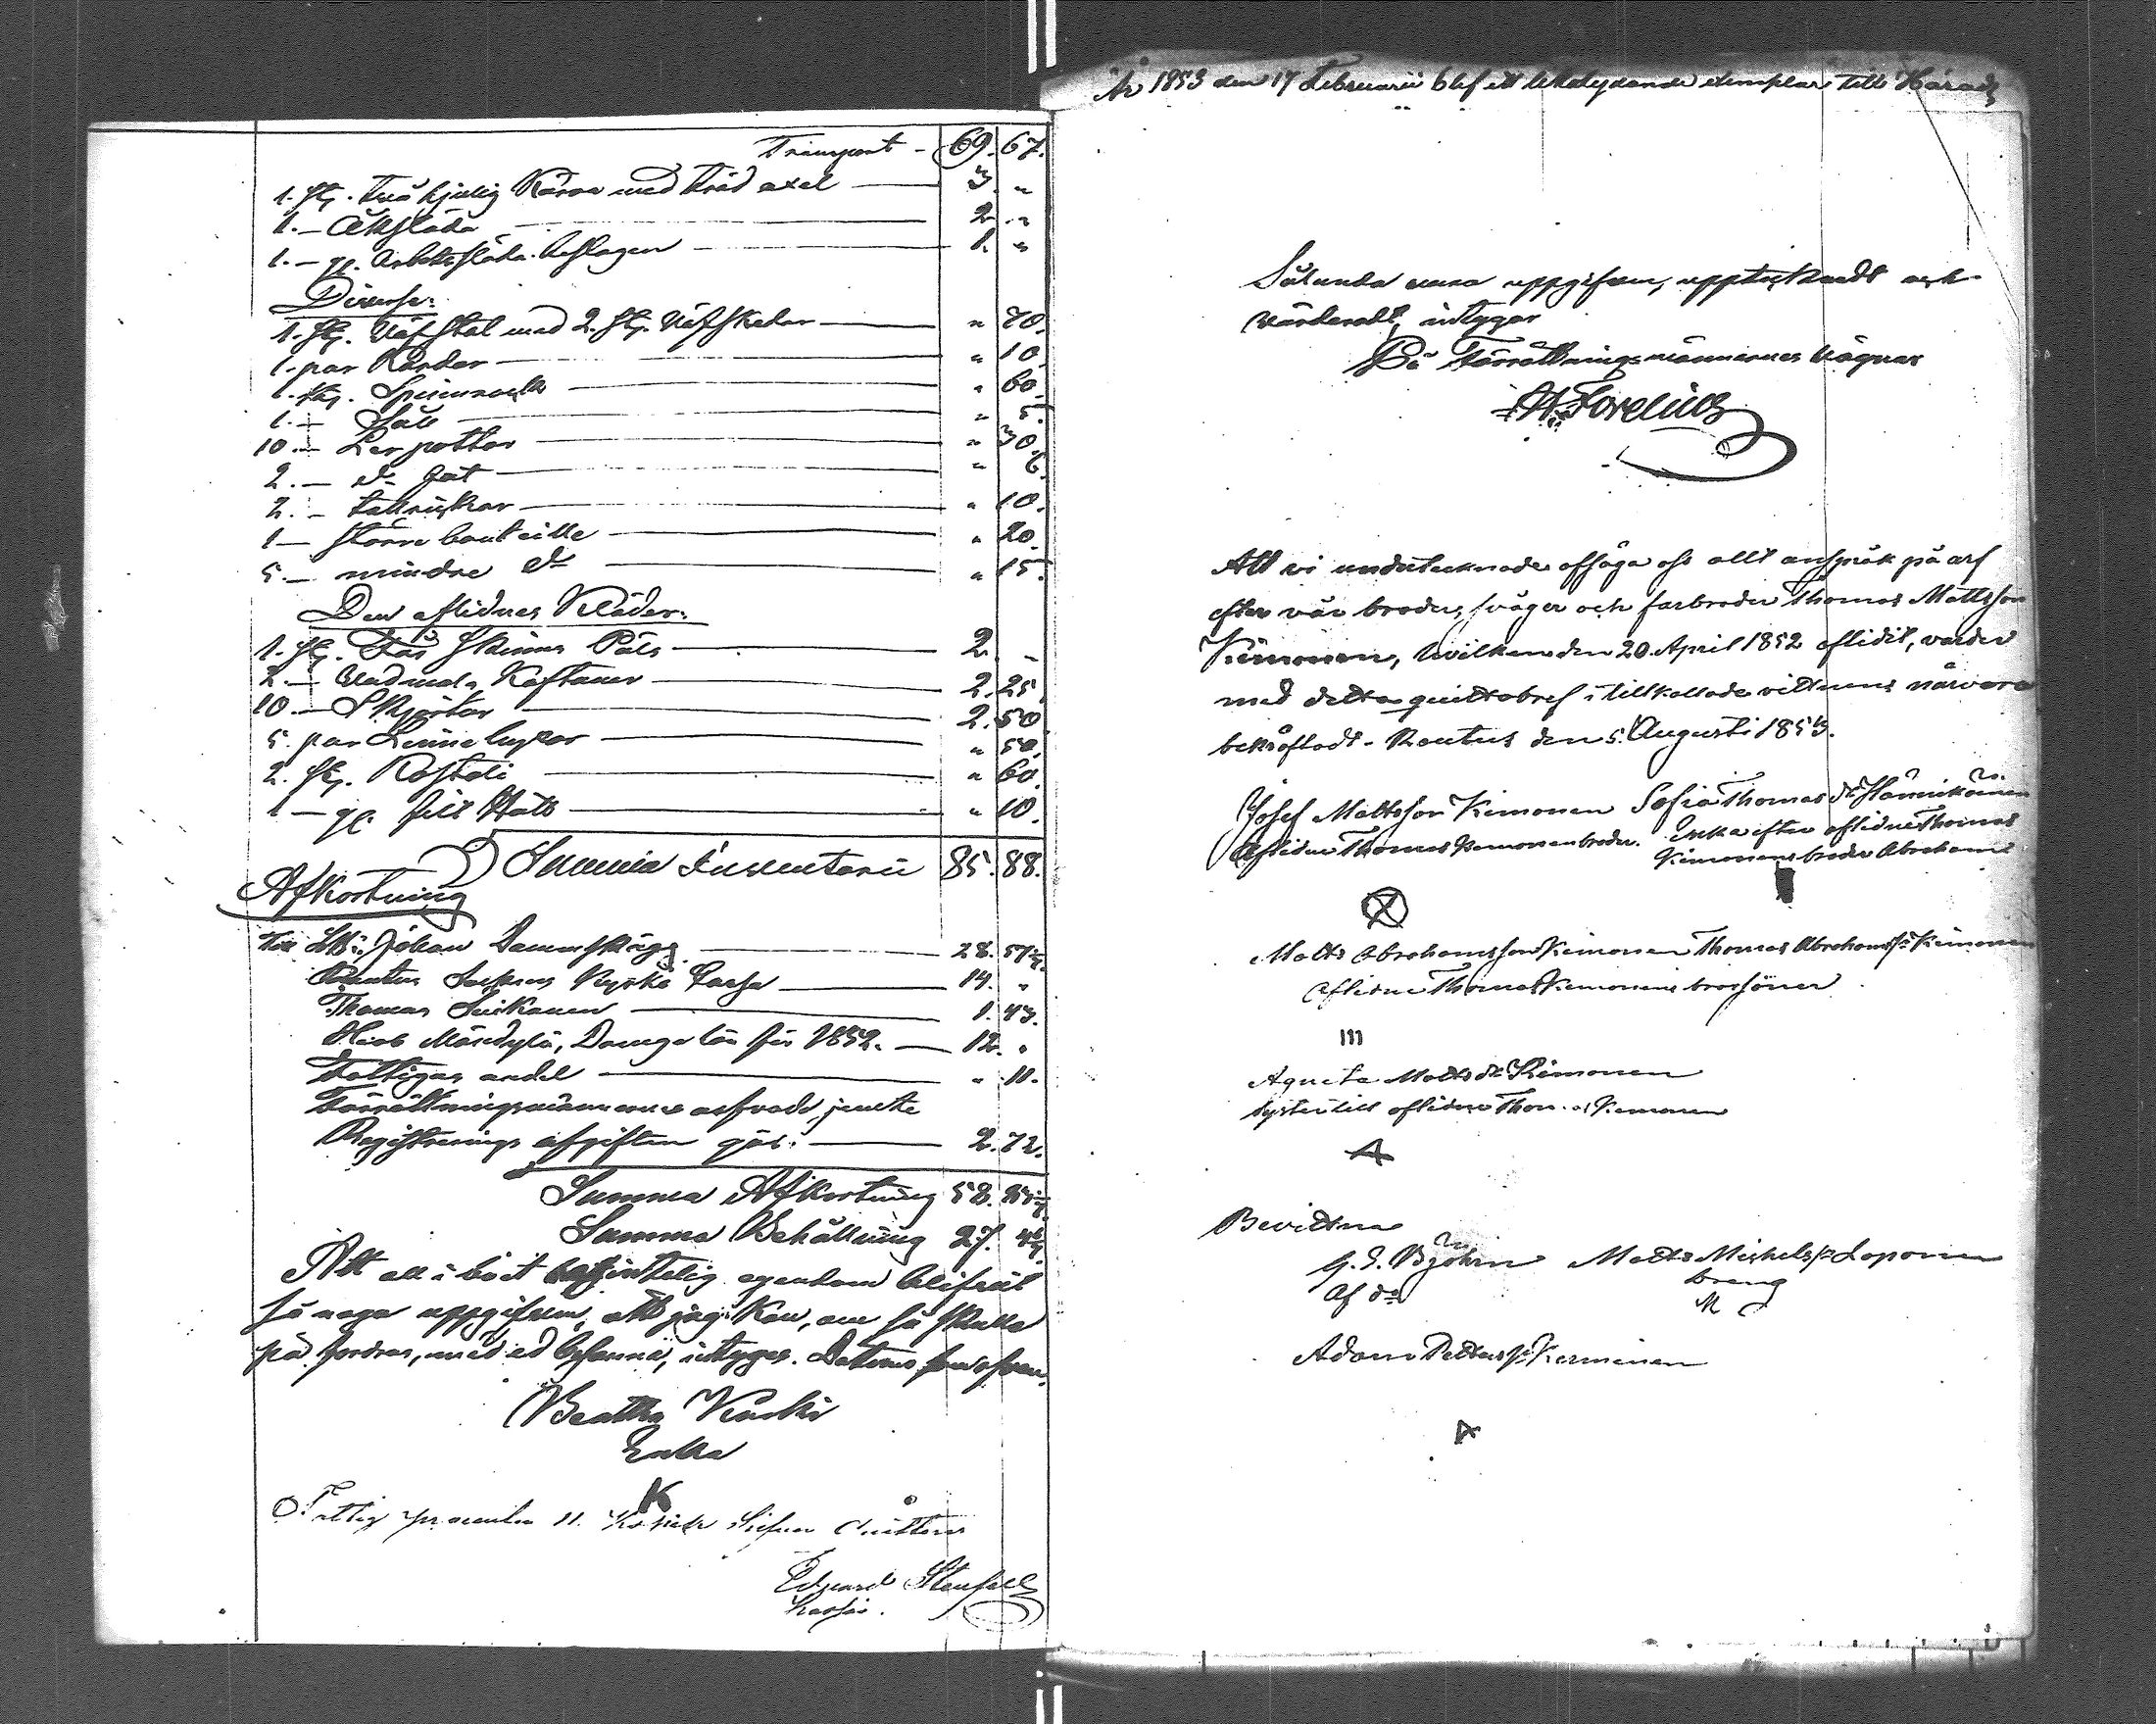 Transport - 69. 67.
1. st. Två hjulig Kärra med träd axel 3. "
1. — Åksläda 2. "
1. — gl. Arbetssläda beslagen 1. "
Diverse:
1. st. Väfstol med 2. st. Väfskedar " 70.
1. par Kardor " 10.
1. st. Spinnrock " 60.
1. — Såll " 5.
10. — Ler pottor " 30.
2. — do fat " 6.
2. — tallrickar " 10.
1 — större bouteille " 20.
5. — mindre do " 15.
Den aflidnes Kläder:
1. st. Får Skinns Päls 2. "
2. — Vadmals Kaftaner 2. 25.
10. — Skjortor 2. 50.
5. par Linne byxor " 50.
2. st. Kostoli " 60.
1 — gl. filt Hatt " 10.
Summa Inventarii 85. 88.
Afkortning
Till Johan Dammskägg 28. 57
Rautus Sockens Kyrko Cassa 14. "
Thomas Suikanen 1. 43.
Drenga lön för 1852. — 12. "
Fattigas andel " 11.
Förrättningsmännernes arfvode jemte
Registrerings afgiften gör: 2. 72.
Summa Afkortning 58.
Summa Behållning 27.
Att all i boet befintelig egendom blifvit
så noga uppgifven, att jag kan, om så skulle
på fordras, med ed besanna, intygar. Datum som ofvan.
Beatha Kuski
Enka
K
Fattig procenten 11. Kopek Silfver quitteras
Edvard Stenfelt
Kassör.
År 1853 den 17 Februarii blef ett likalydande exemplar till Härads
Sålunda vara uppgifvem, upptecknadt och
värderadt, intygar
På Förrättningsmännernes vägnar
Forelius
Att vi undertecknade afsäga oss allt anspråk på arf
efter vår broder, svåger och farbroder Thomas Mattsson
Kimonen, hvilken den 20 April 1852 aflidit, varder
med detta quittobref i tillkallade vittnens närvaro
bekräftadt. Rautus den 5. Augusti 1853.
Josef Mattsson Kimonen Sofia Thomas dr Hännikäinen
Aflidne Thomas Kimonens broder. Enka efter aflidne Thomas
Kimonens broder Abraham
X
Matts Abrahamsson Kimonen Thomas Abrahamsson Kimonen
Aflidne Thomas Kimonens brorsöner
m
Agneta Matts dr Kimonen
Syster till aflidne Thomas Kimonen
A
Bevittna
G. E. Björn Matts Michelsson Loponen
Af do dreng
M
Adam Pettersson Kerminen
A